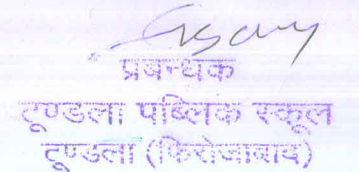 प्रबन्धक
टूण्डला पब्लिक स्कूल
टूण्डला (फिरोजाबाद)